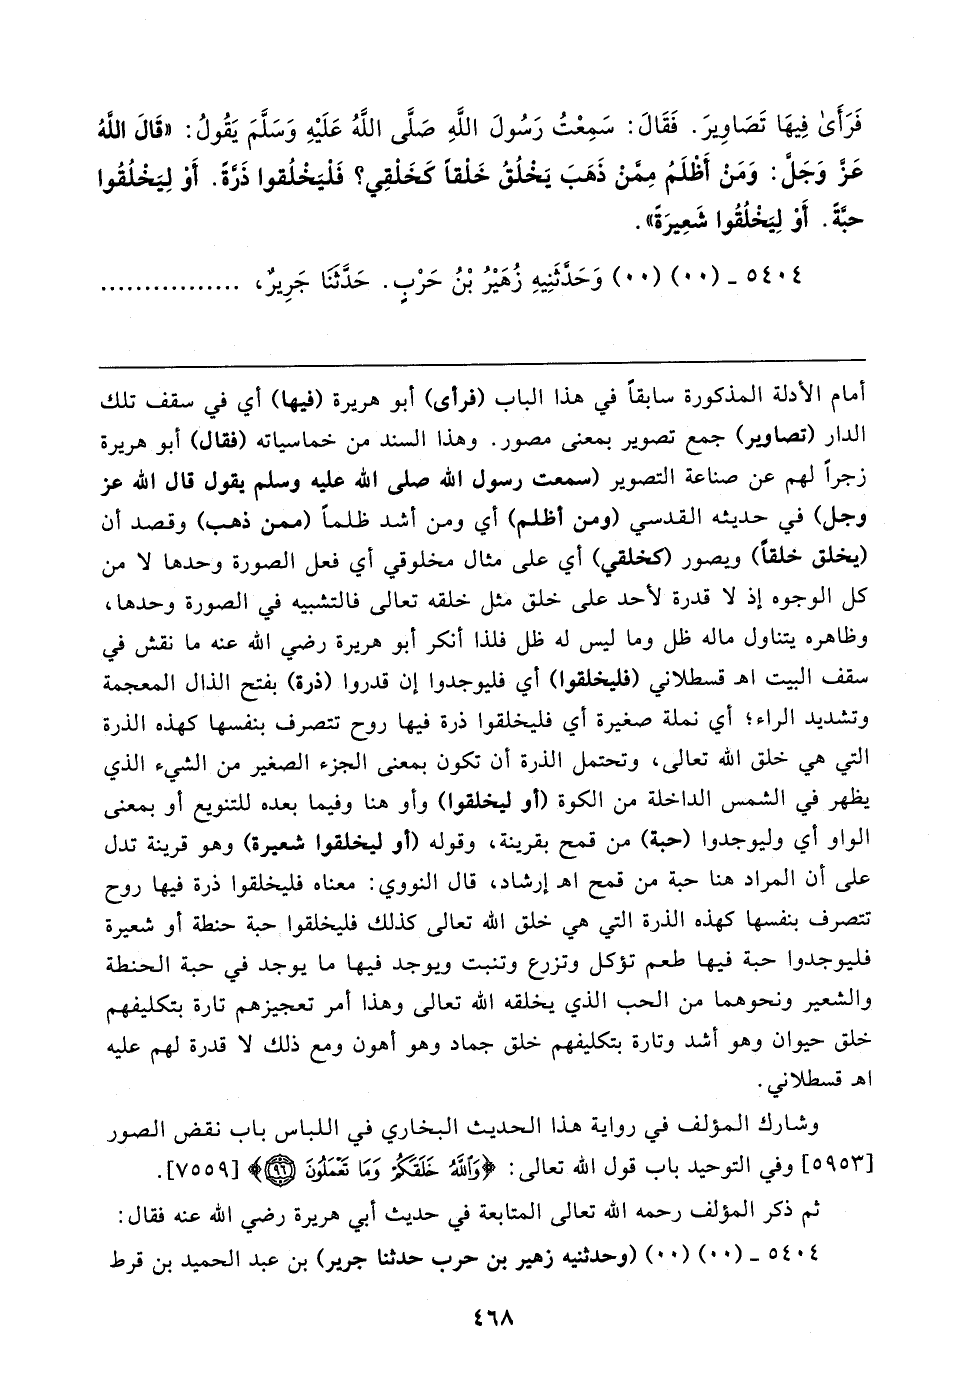 فَرَأَىٰ فِيهَا تَصَاوِيرَ. فَقَالَ: سَمِعْتُ رَسُولَ اللَّهِ صَلَّى اللَّهُ عَلَيْهِ وَسَلَّمَ يَقُولُ: «قَالَ اللَّهُ
عَزَّ وَجَلَّ: وَمَنْ أَظْلَمُ مِمَّنْ ذَهَبَ يَخْلُقُ خَلْقاً كَخَلْقِي؟ فَلْيَخْلُقوا ذَرَّةً. أَوْ لِيَخْلُقُوا
حبَّةً. أَوْ لِيَخْلُقُوا شَعِيرَةً».
٥٤٠٤ ـ (٠٠) (٠٠) وَحَدَّثَنِيهِ زُهَيْرُ بْنُ حَرْبٍ. حَدَّثَنَا جَرِيرٌ، ................
أمام الأدلة المذكورة سابقاً في هذا الباب (فرأى) أبو هريرة (فيها) أي في سقف تلك
الدار (تصاوير) جمع تصوير بمعنى مصور. وهذا السند من خماسياته (فقال) أبو هريرة
زجراً لهم عن صناعة التصوير (سمعت رسول الله صلى الله عليه وسلم يقول قال الله عز
وجل) في حديثه القدسي (ومن أظلم) أي ومن أشد ظلماً (ممن ذهب) وقصد أن
(يخلق خلقاً) ويصور (كخلقي) أي على مثال مخلوقي أي فعل الصورة وحدها لا من
كل الوجوه إذ لا قدرة لأحد على خلق مثل خلقه تعالى فالتشبيه في الصورة وحدها،
وظاهره يتناول ماله ظل وما ليس له ظل فلذا أنكر أبو هريرة رضي الله عنه ما نقش في
سقف البيت اهـ قسطلاني (فليخلقوا) أي فليوجدوا إن قدروا (ذرة) بفتح الذال المعجمة
وتشديد الراء؛ أي نملة صغيرة أي فليخلقوا ذرة فيها روح تتصرف بنفسها كهذه الذرة
التي هي خلق الله تعالى، وتحتمل الذرة أن تكون بمعنى الجزء الصغير من الشيء الذي
يظهر في الشمس الداخلة من الكوة (أو ليخلقوا) وأو هنا وفيما بعده للتنويع أو بمعنى
الواو أي وليوجدوا (حبة) من قمح بقرينة، وقوله (أو ليخلقوا شعيرة) وهو قرينة تدل
على أن المراد هنا حبة من قمح اهـ إرشاد، قال النووي: معناه فليخلقوا ذرة فيها روح
تتصرف بنفسها كهذه الذرة التي هي خلق الله تعالى كذلك فليخلقوا حبة حنطة أو شعيرة
فليوجدوا حبة فيها طعم تؤكل وتزرع وتنبت ويوجد فيها ما يوجد في حبة الحنطة
والشعير ونحوهما من الحب الذي يخلقه الله تعالى وهذا أمر تعجيزهم تارة بتكليفهم
خلق حيوان وهو أشد وتارة بتكليفهم خلق جماد وهو أهون ومع ذلك لا قدرة لهم عليه
اهـ قسطلاني.
وشارك المؤلف في رواية هذا الحديث البخاري في اللباس باب نقض الصور
[٥٩٥٣] وفي التوحيد باب قول الله تعالى: ﴿وَٱللَّهُ خَلَقَكُمْ وَمَا تَعْمَلُونَ ٩٦﴾ [٧٥٥٩].
ثم ذكر المؤلف رحمه الله تعالى المتابعة في حديث أبي هريرة رضي الله عنه فقال:
٥٤٠٤ ـ (٠٠) (٠٠) (وحدثنيه زهير بن حرب حدثنا جرير) بن عبد الحميد بن قرط
٤٦٨